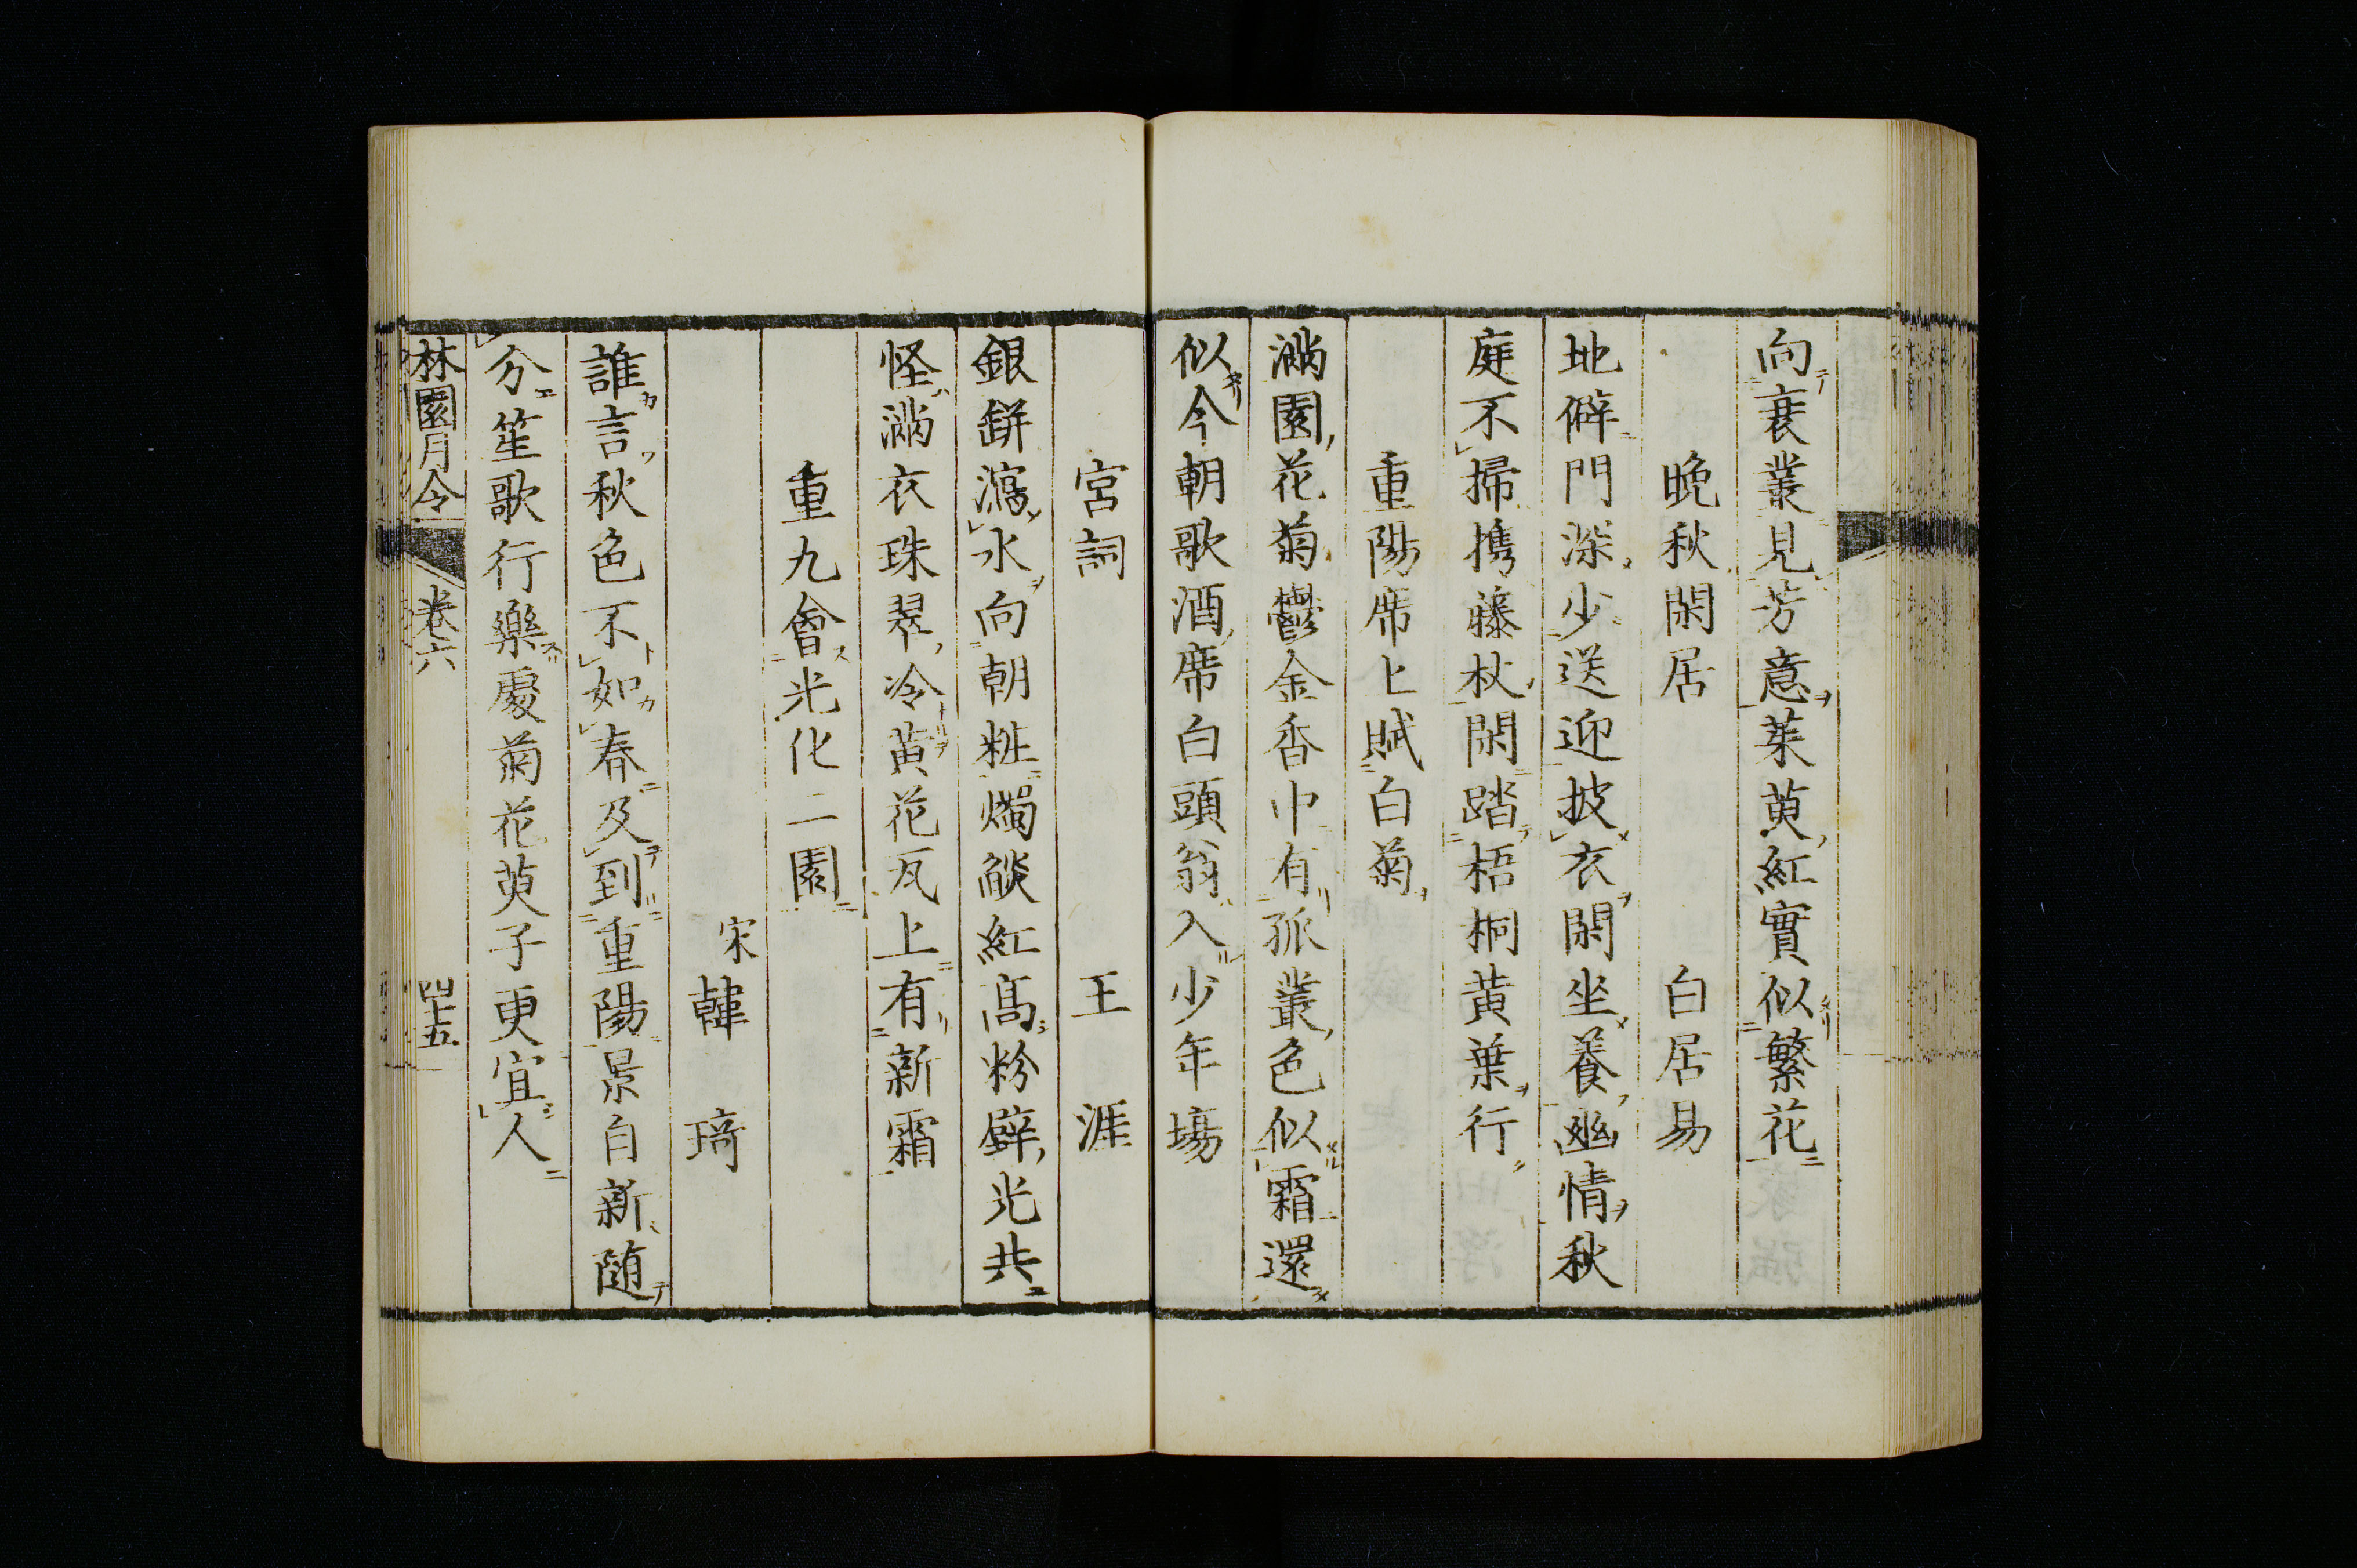 向衰叢見芳意茱萸紅實似繁花
晚秋閑居 白居易
地僻門深少送迎披衣閑坐養幽情秋
庭不掃携藤杖閑踏梧桐黄葉行
重陽席上賦白菊
滿園花菊鬱金香中有孤叢色似霜還
似今朝歌酒席白頭翁入少年場
宮詞 王涯
銀缾瀉水向朝粧燭燄紅高粉壁光共
怪滿衣珠翠冷黄花瓦上有新霜
重九會光化二園
宋韓琦
誰言秋色不如春及到重陽景自新随
分笙歌行樂處菊花萸子更宜人
林園月令 卷六 四十五